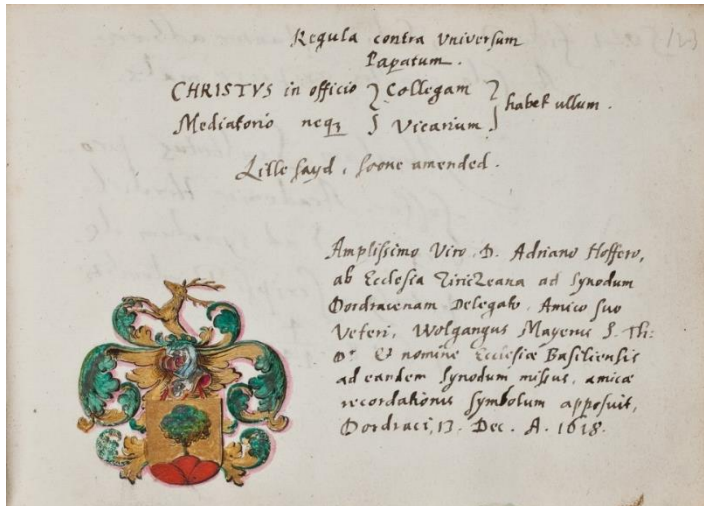 Regula contra Universum
Papatum.
CHRISTVS in officio } Collegam } habet ullum.
Mediatorio neqȝ } Vicarium }
Lille sayd, soone amended.
Amplissimo Viro, D. Adriano Hoffero,
ab Ecclesia Ziriczeana ad Synodum
Dordracenam Delegato, Amico suo
Veteri, Wolgangus Mayerus S. Th:
Dr. Et nomine Ecclesiæ Basiliensis
ad eandem Synodum missus, amicæ
recordationis Symbolum apposuit,
Dordraci, 17. Dec. A. 1618.